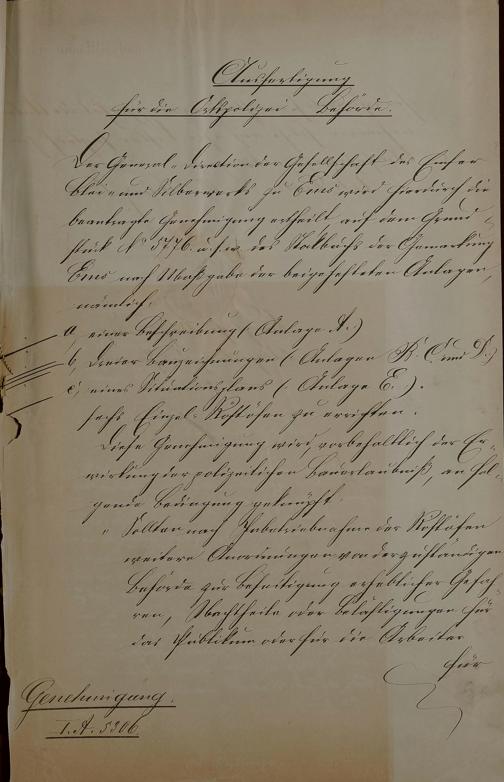 Ausfertigung
für die Ortspolizei-Behörde.
Der General-Direktion der Gesellschaft des Emser
Blei- und Silberwerks zu Ems wird hierdurch die
beantragte Genehmigung ertheilt auf dem Grund-
stück No 5776. u.s.w. des Stockbuchs der Gemarkung
Ems nach Maßgabe der beigehefteten Anlagen,
nämlich:
a, einer Beschreibung (Anlage A.)
b, dreier Bauzeichnungen (Anlagen B. C. und D.)
c, eines Situationsplans (Anlage E.).
sechs Einzel-Röstöfen zu errichten.
Diese Genehmigung wird, vorbehaltlich der Er-
wirkung der polizeilichen Bauerlaubniß, an fol-
gende Bedingung geknüpft:
„Sollten nach Inbetriebnahme der Röstöfen
weitere Anordnungen von der zuständigen
Behörde zur Beseitigung erheblicher Gefah-
ren, Nachtheile oder Belästigungen für
das Publikum oder für die Arbeiter
für
Genehmigung.
I. A. 5306.